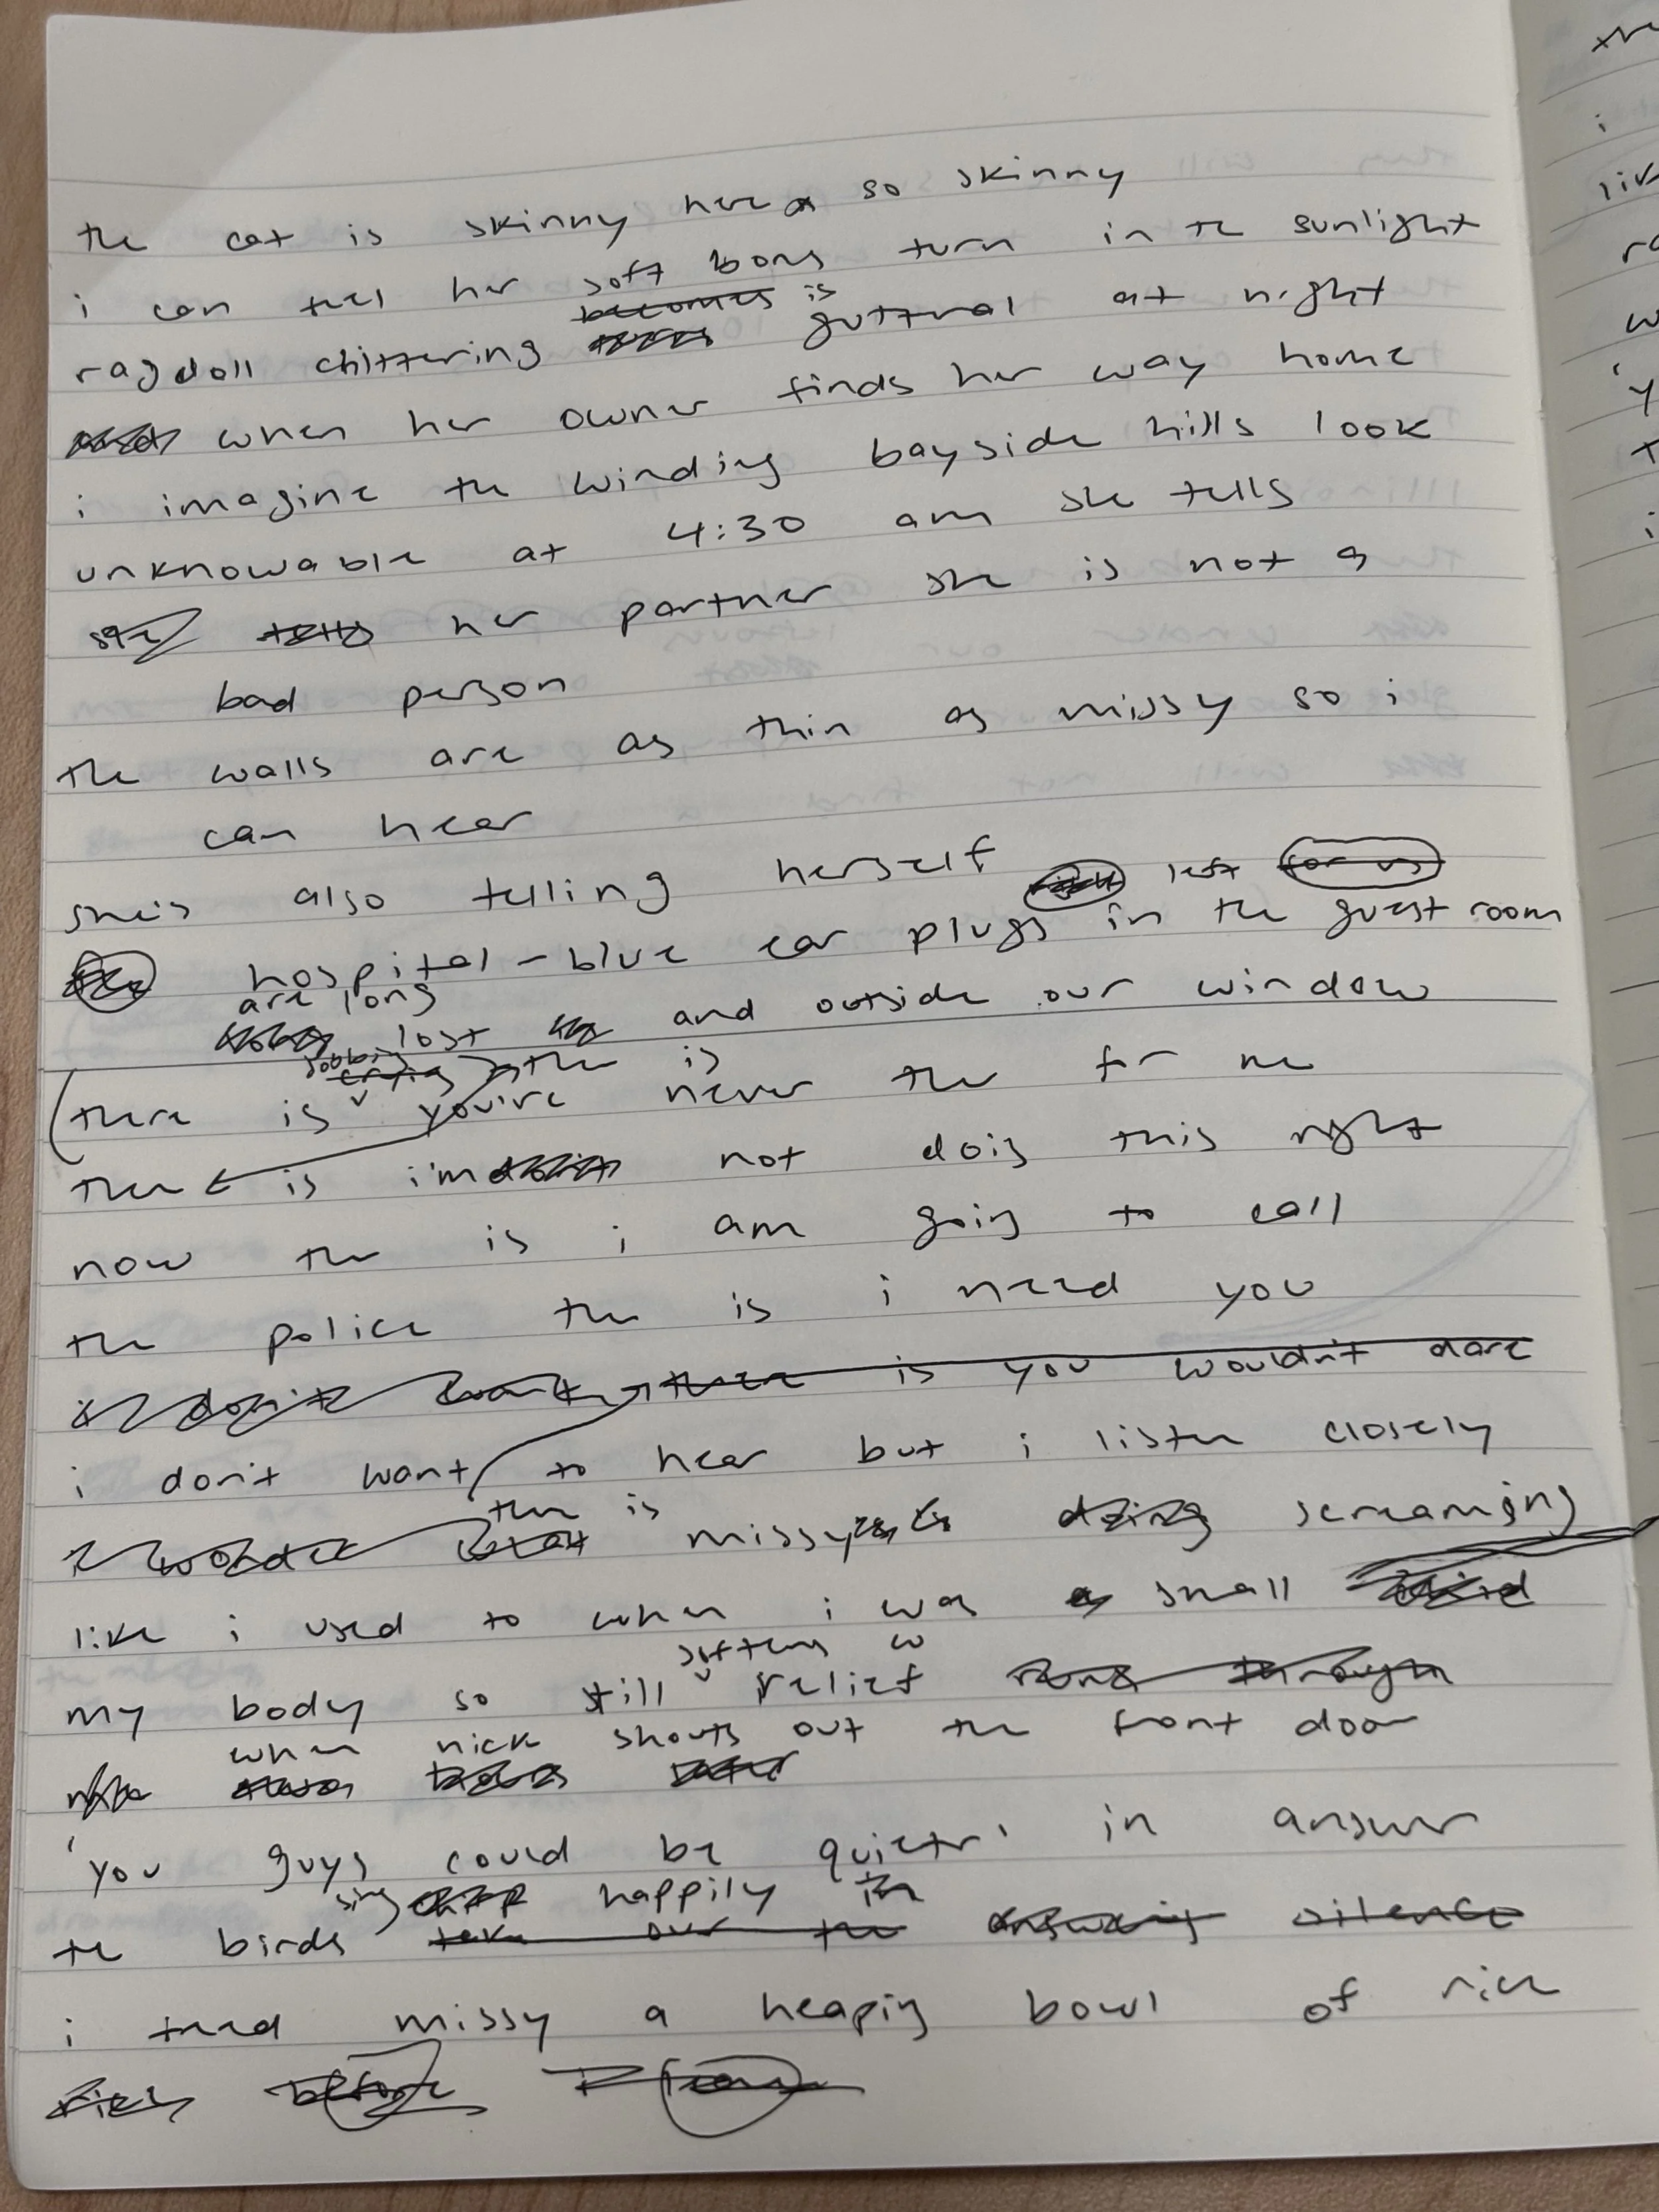 the cat is skinny here so skinny
i can feel her soft bons turn in the sunlight
becomes is
ragdoll chittering guttural at night
when her owner finds her way home
i imagine the winding bayside hills look
unknowable at 4:30 am she tells
she tells her partner she is not a
bad person
the walls are as thin as missy so i
can hear
she's also telling herself
left for us
hospital-blue ear plugs in the guest room
are long
lost and outside our window
sobbing crying there is
there is you're never there for me
there is i'm not doing this right
now there is i am going to call
the police there is i need you
i don't want there is you wouldn't dare
i don't want to hear but i listen closely
there is
i wonder missy is doing screaming
like i used to when i was a small child
softens w
my body so still relief runs through
when nick shouts out the front door
'you guys could be quieter' in answer
sing chirp happily in
the birds take over the answering silence
i feed missy a heaping bowl of rice
before